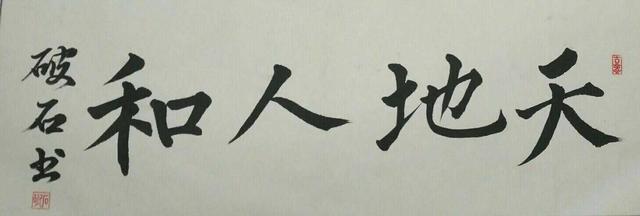 天地人和
破石书